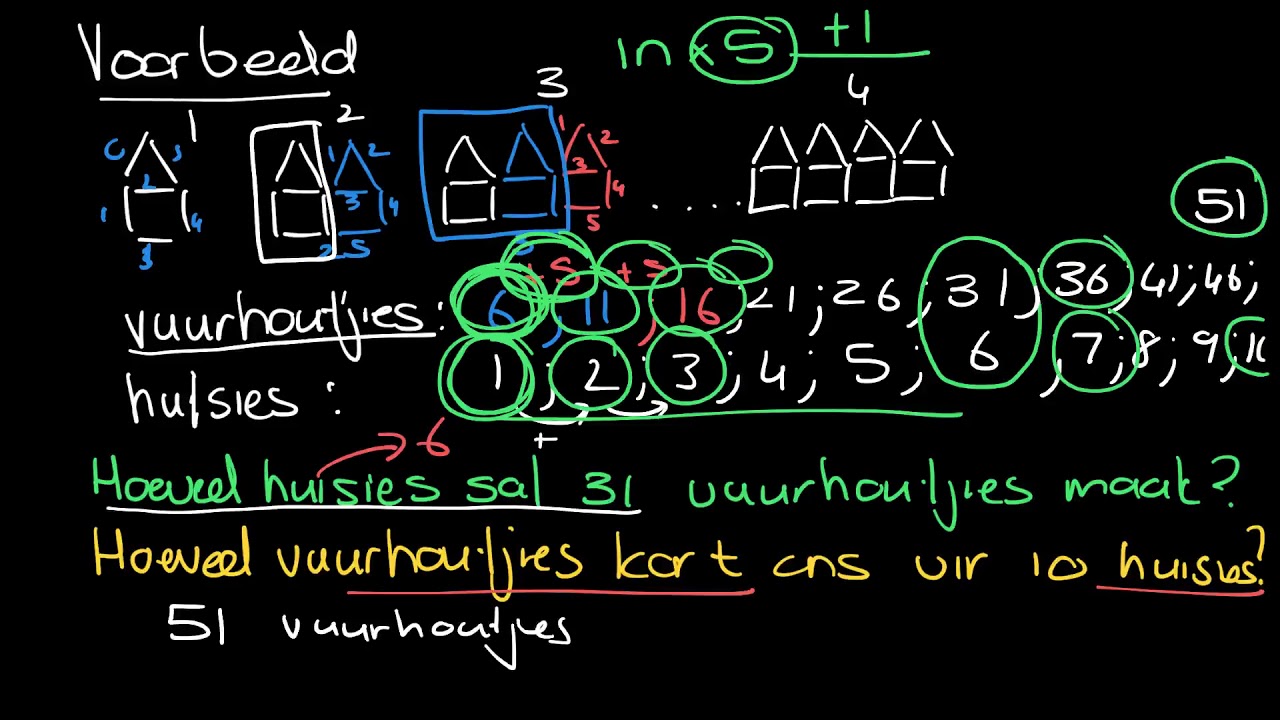 Voorbeeld
in × 5 + 1
1 2 3 4
0 5 2 1 4 3
1 2 3 4 2 5
1 2 3 4 5
51
+5 +5
vuurhoutjies: 6; 11; 16; 21; 26; 31; 36; 41; 46;
huisies: 1; 2; 3; 4; 5; 6; 7; 8; 9; 10
6 +
Hoeveel huisies sal 31 vuurhoutjies maak?
Hoeveel vuurhoutjies kort ons vir 10 huisies?
51 vuurhoutjies